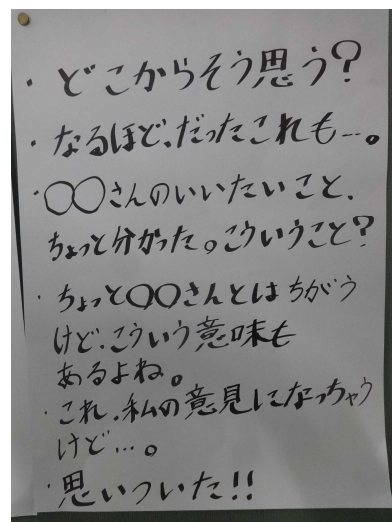 ・どこからそう思う?
・なるほど、だったこれも…。
・○○さんのいいたいこと、
ちょっと分かった。こういうこと?
・ちょっと○○さんとはちがう
けど、こういう意味も
あるよね。
・これ、私の意見になっちゃう
けど…。
・思いついた!!